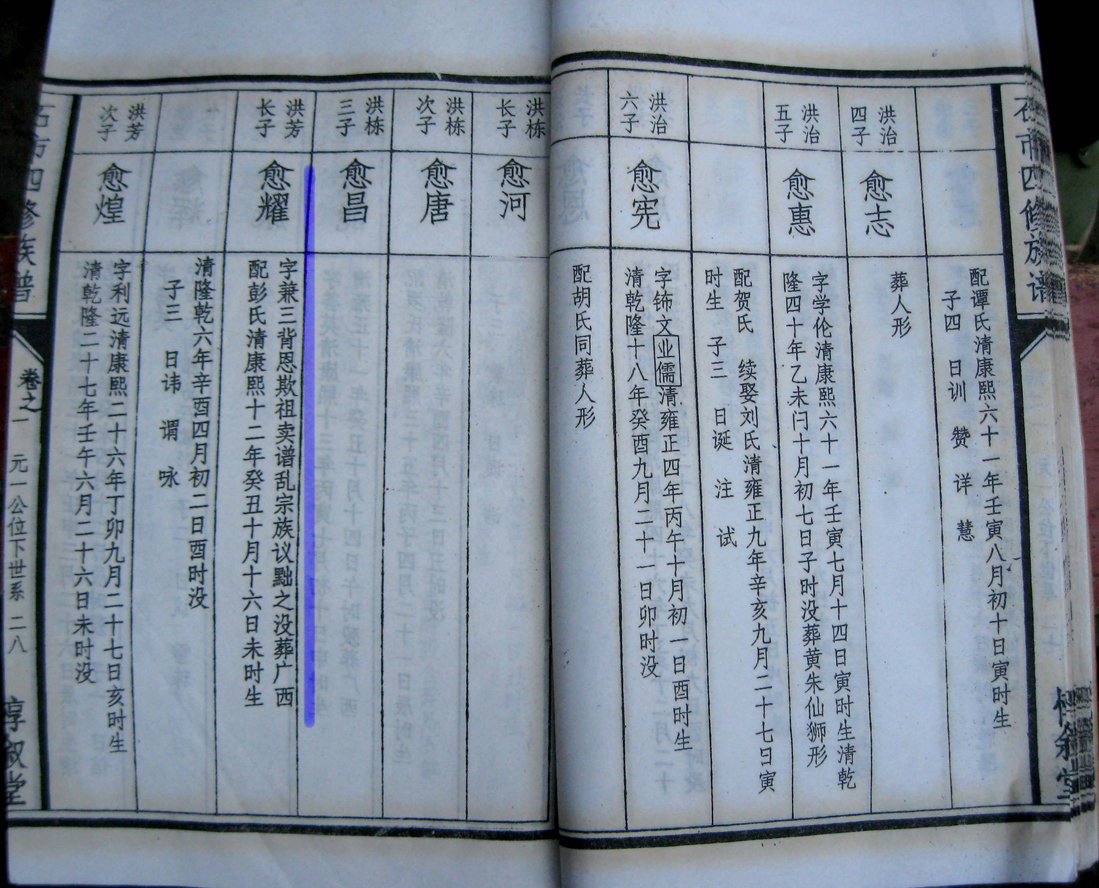 石市四修族谱
惇叙堂
配谭氏清康熙六十一年壬寅八月初十日寅时生
子四 日训 赞 详 慧
洪治
四子
愈志
葬人形
洪治
五子
愈惠
字学伦清康熙六十一年壬寅七月十四日寅时生清乾
隆四十年乙未闩十月初七日子时没葬黄朱仙狮形
配贺氏 续娶刘氏清雍正九年辛亥九月二十七日寅
时生 子三 日诞 注 试
洪治
六子
愈宪
字钸文业儒清雍正四年丙午十月初一日酉时生
清乾隆十八年癸酉九月二十一日卯时没
配胡氏同葬人形
洪栋
长子
愈河
洪栋
次子
愈唐
洪栋
三子
愈昌
洪芳
长子
愈耀
字兼三背恩欺祖卖谱乱宗族议黜之没葬广西
配彭氏清康熙十二年癸丑十月十六日未时生
清隆乾六年辛酉四月初二日酉时没
子三 日讳 谓 咏
洪芳
次子
愈煌
字利远清康熙二十六年丁卯九月二十七日亥时生
清乾隆二十七年壬午六月二十六日未时没
石市四修族谱
卷之一 元一公位下世系 二八
惇叙堂